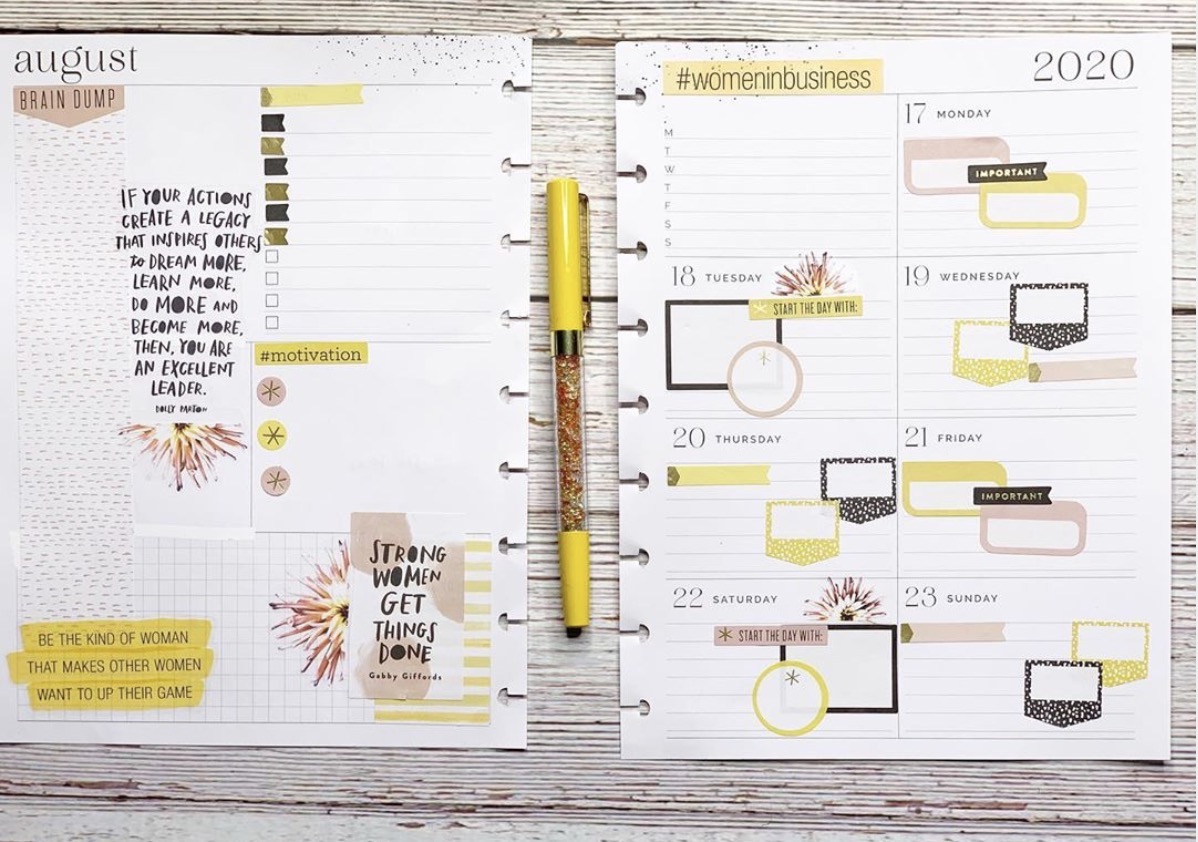 august
BRAIN DUMP
IF YOUR ACTIONS
CREATE A LEGACY
THAT INSPIRES OTHERS
to DREAM MORE,
LEARN MORE,
DO MORE AND
BECOME MORE,
THEN, YOU ARE
AN EXCELLENT
LEADER.
DOLLY PARTON
#motivation
STRONG
WOMEN
GET
THINGS
DONE
Gabby Giffords
BE THE KIND OF WOMAN
THAT MAKES OTHER WOMEN
WANT TO UP THEIR GAME
#womeninbusiness
2020
M
T
W
T
F
S
S
17 MONDAY
IMPORTANT
18 TUESDAY
START THE DAY WITH:
19 WEDNESDAY
20 THURSDAY
21 FRIDAY
IMPORTANT
22 SATURDAY
START THE DAY WITH:
23 SUNDAY